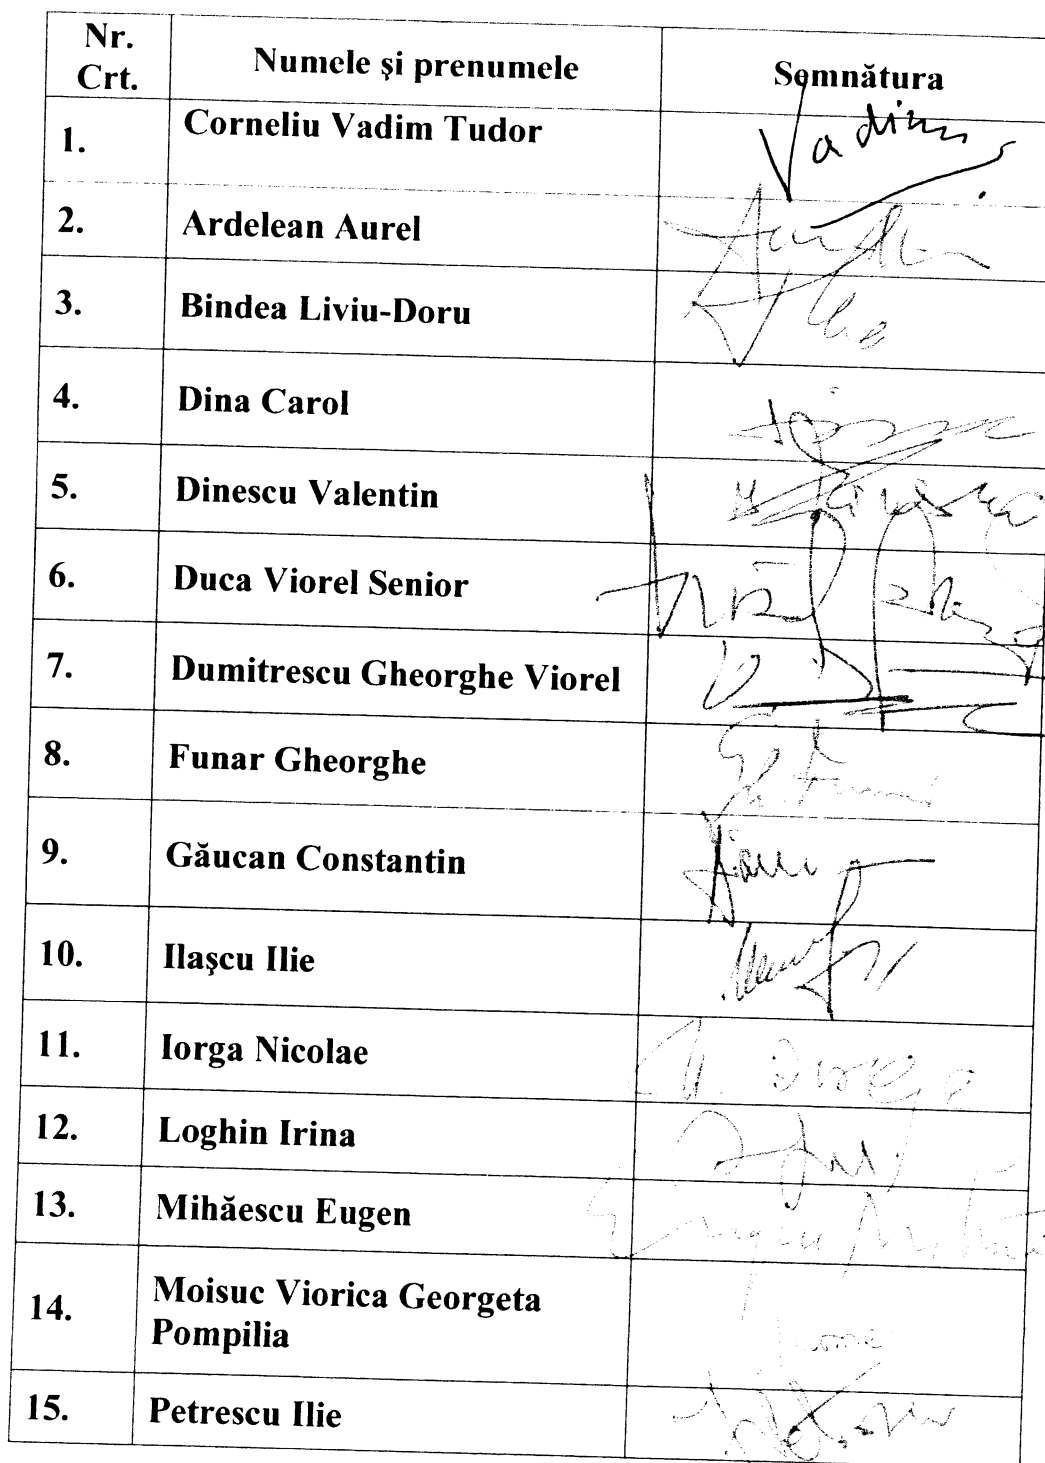 Nr. Crt. Numele şi prenumele Semnătura
1. Corneliu Vadim Tudor Vadim
2. Ardelean Aurel
3. Bindea Liviu-Doru
4. Dina Carol
5. Dinescu Valentin
6. Duca Viorel Senior
7. Dumitrescu Gheorghe Viorel
8. Funar Gheorghe
9. Găucan Constantin
10. Ilaşcu Ilie
11. Iorga Nicolae
12. Loghin Irina
13. Mihăescu Eugen
14. Moisuc Viorica Georgeta
Pompilia
15. Petrescu Ilie